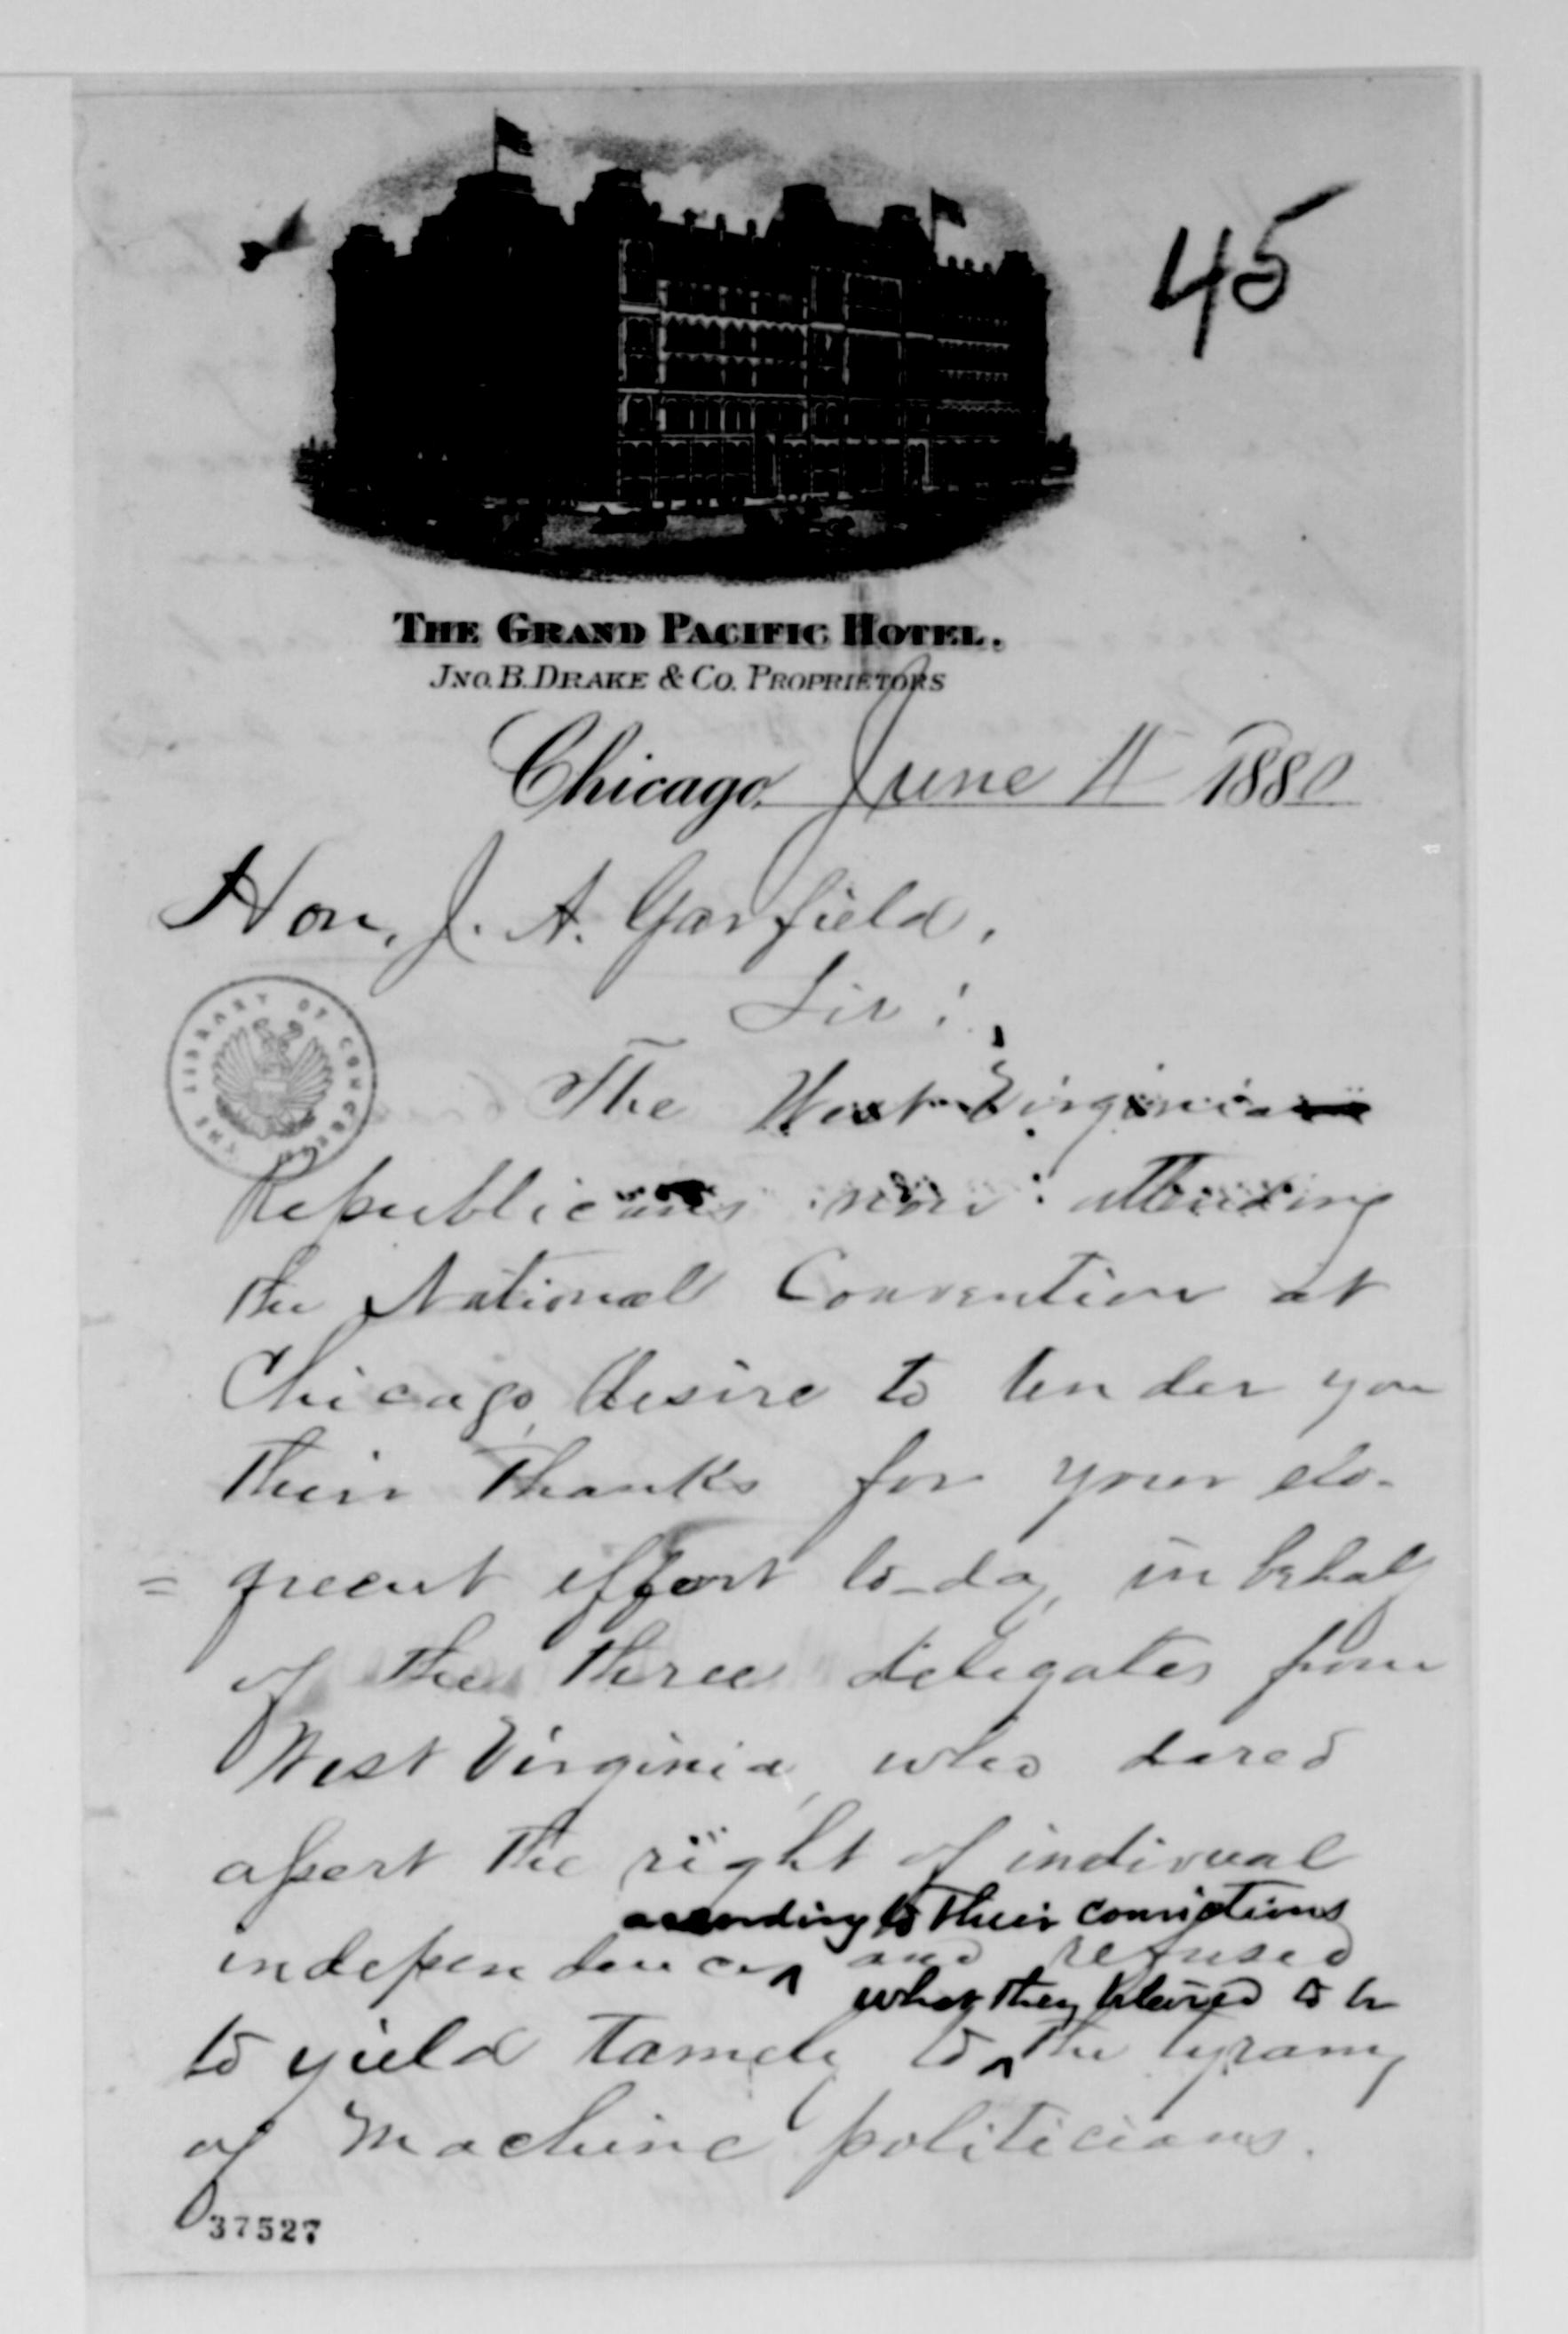 45
THE GRAND PACIFIC HOTEL.
JNO. B. DRAKE & CO. PROPRIETORS
Chicago, June 4 1880
Hon. J. A. Garfield,
Sir:
THE LIBRARY OF CONGRESS
The West Virginia
Republicans now attending
the National Convention at
Chicago, desire to tender you
their thanks for your elo-
= quent effort to-day, in behalf
of the three delegates from
West Virginia, who dared
assert the right of indivual
according to their convictions
independence ^ and refused
what they believed to be
to yield tamely to ^ the tyranny
of Machine politicians.
37527